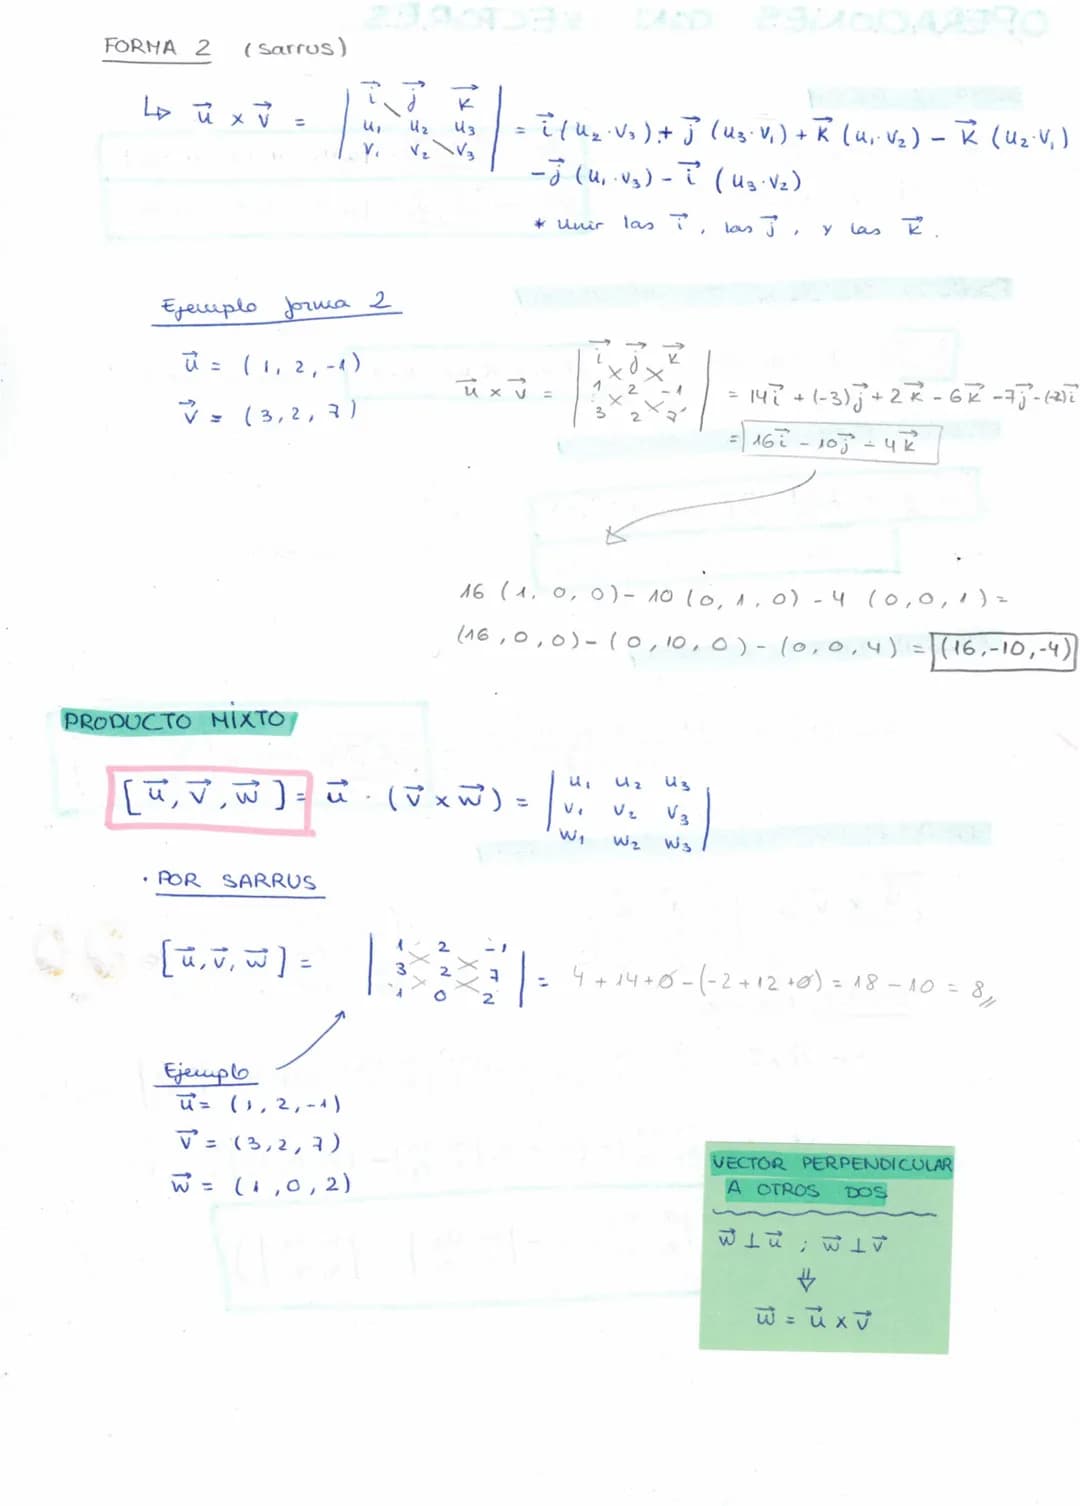 FORMA 2 (Sarrus)
↳ u⃗ x v⃗ = | i⃗ j⃗ k⃗ | = i⃗ (u₂·v₃) + j⃗ (u₃·v₁) + k⃗ (u₁·v₂) - k⃗ (u₂·v₁)
u₁ u₂ u₃
v₁ v₂ v₃
-j⃗ (u₁·v₃) - i⃗ (u₃·v₂)
* Unir las i⃗, las j⃗, y las k⃗.
Ejemplo forma 2
u⃗ = (1, 2, -1)
v⃗ = (3, 2, 7)
u⃗ x v⃗ = | i⃗ j⃗ k⃗ | = 14i⃗ + (-3)j⃗ + 2k⃗ - 6k⃗ - 7j⃗ - (-2)i⃗
1 2 -1
3 2 7
= 16i⃗ - 10j⃗ - 4k⃗
16 (1, 0, 0) - 10 (0, 1, 0) - 4 (0, 0, 1) =
(16, 0, 0) - (0, 10, 0) - (0, 0, 4) = (16, -10, -4)
PRODUCTO MIXTO
[u⃗, v⃗, w⃗] = u⃗ · (v⃗ x w⃗) = | u₁ u₂ u₃ |
v₁ v₂ v₃
w₁ w₂ w₃
· POR SARRUS
[u⃗, v⃗, w⃗] = | 1 2 -1 | = 4 + 14 + 0 - (-2 + 12 + 0) = 18 - 10 = 8
3 2 7
1 0 2
Ejemplo
u⃗ = (1, 2, -1)
v⃗ = (3, 2, 7)
w⃗ = (1, 0, 2)
VECTOR PERPENDICULAR
A OTROS DOS
w⃗ ⊥ u⃗ ; w⃗ ⊥ v⃗
⇓
w⃗ = u⃗ x v⃗